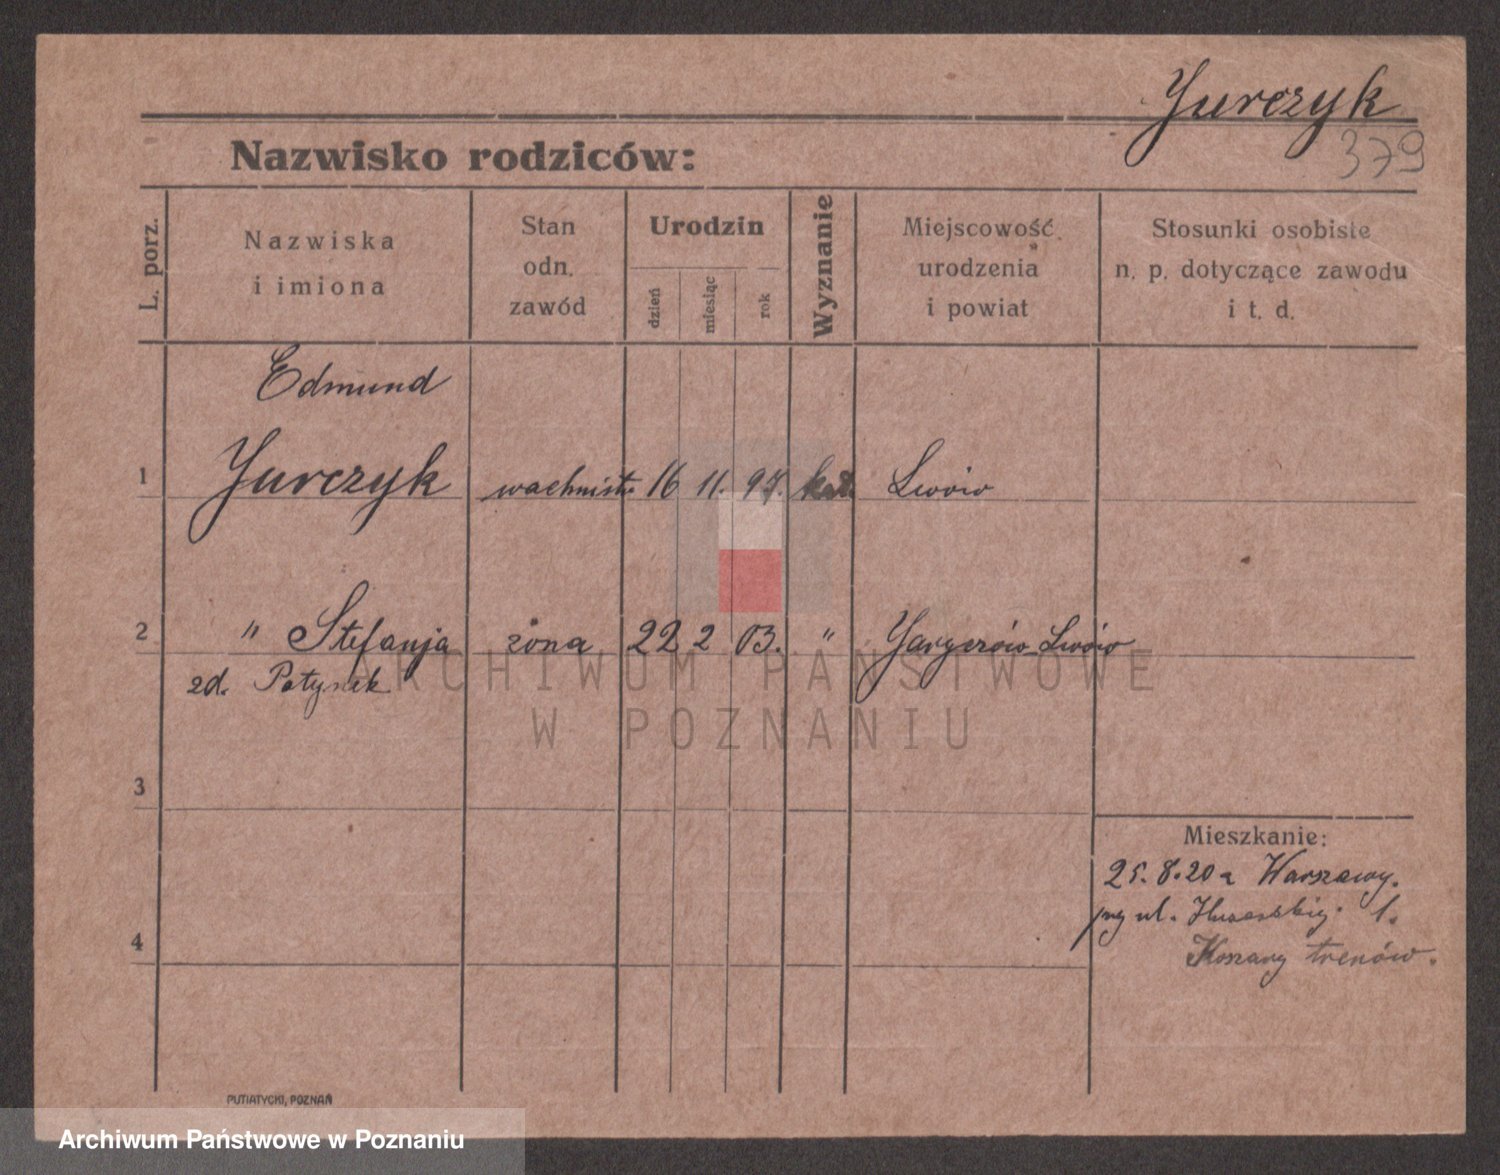 Jurczyk
379
Nazwisko rodziców:
L. porz.
Nazwiska
i imiona
Stan
odn.
zawód
Urodzin
dzień
miesiąc
rok
Wyznanie
Miejscowość
urodzenia
i powiat
Stosunki osobiste
n. p. dotyczące zawodu
i t. d.
Edmund
1 Jurczyk wachmistrz 16 11. 97. kat. Lwów
2 " Stefanja żona 22 2 03. " Lwów
zd.
ARCHIWUM PAŃSTWOWE
W POZNANIU
3
Mieszkanie:
25.8.20 z Warszawy.
ul. 1.
4
Koszary trenów.
PUTIATYCKI, POZNAŃ
Archiwum Państwowe w Poznaniu